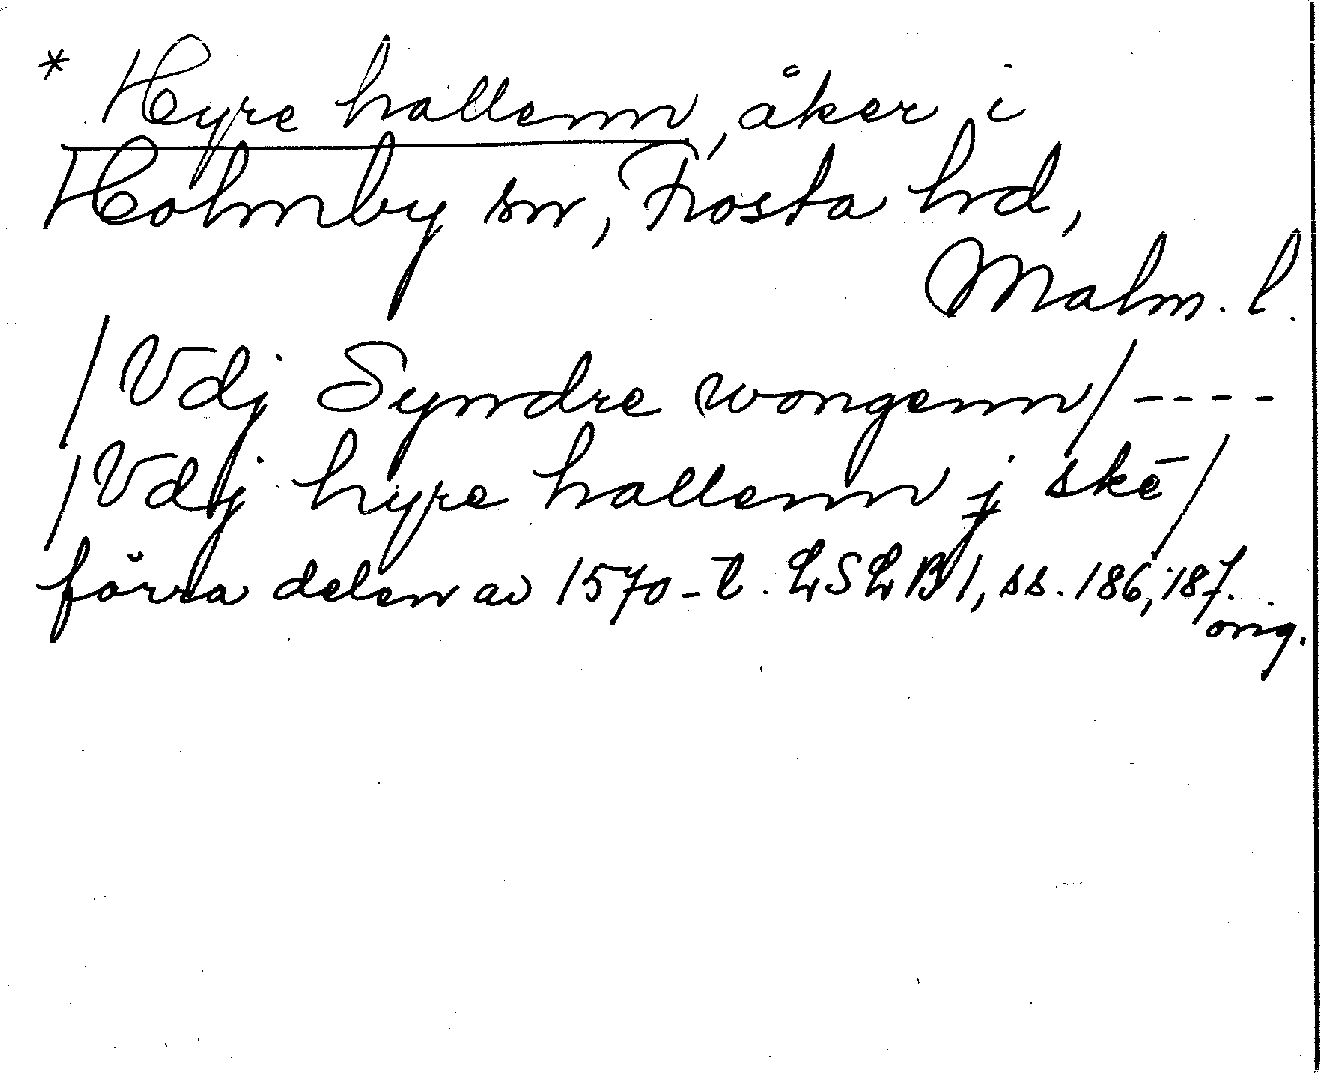 * Hyre hallenn, åker i
Holmby sn, Frosta hd,
Malm. l.
/Vdj Syndre wongenn/ ----
/Vdj hyre hallenn j skē/
förra delen av 1570-t. LSLB 1, ss. 186, 187.
orig.